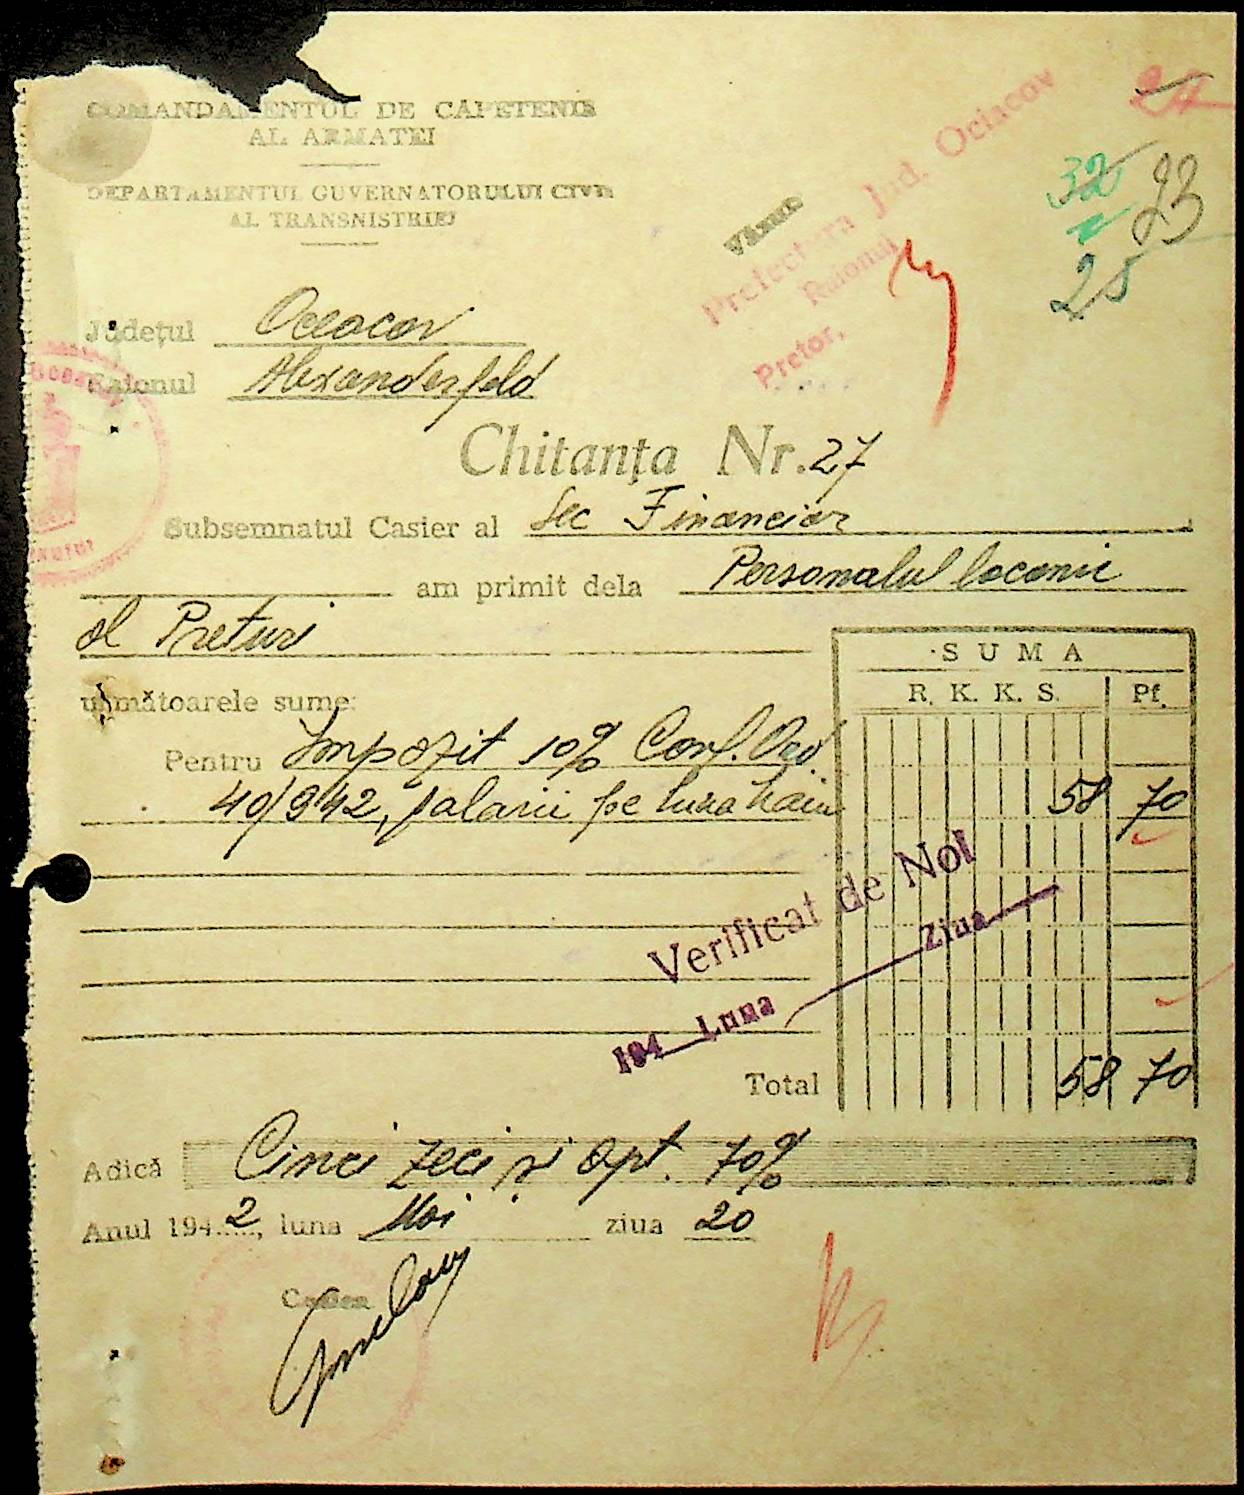 COMANDAMENTUL DE CAPETENIE
AL ARMATEI
DEPARTAMENTUL GUVERNATORULUI CIVIL
AL TRANSNISTRIEI
Văzut
Prefectura Jud. Ociacov
Raionul
Pretor,
32 23
25
Județul Oceacov
Raionul Alexanderfeld
Chitanța Nr. 27
Subsemnatul Casier al Sec Financiar
am primit dela Personalul locanic
al Preturi
următoarele sume:
SUMA
R. K. K. S. Pf.
Pentru Impozit 10% Conf. Ord
40/942, salarii pe luna Maiu 58 70
Verificat de Noi
194 Luna Ziua
Total 58 70
Adică Cinci zeci și opt. 70%
Anul 1942, luna Mai ziua 20
Casier